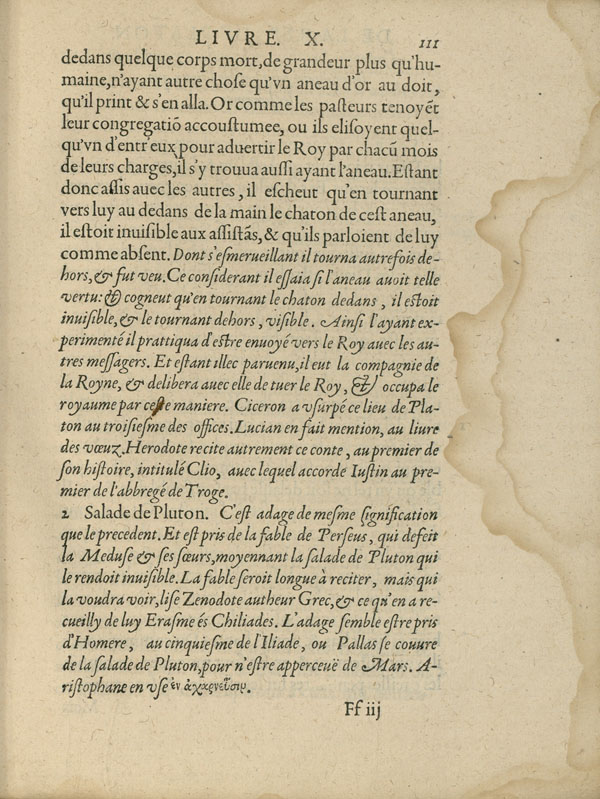 LIVRE. X. 111
dedans quelque corps mort, de grandeur plus qu'hu-
maine, n'ayant autre chose qu'vn aneau d'or au doit,
qu'il print & s'en alla. Or comme les pasteurs tenoyẽt
leur congregatiõ accoustumee, ou ils elisoyent quel-
qu'vn d'entr'eux pour aduertir le Roy par chacũ mois
de leurs charges, il s'y trouua aussi ayant l'aneau. Estant
donc assis auec les autres, il escheut qu'en tournant
vers luy au dedans de la main le chaton de cest aneau,
il estoit inuisible aux assistãs, & qu'ils parloient de luy
comme absent. Dont s'esmerueillant il tourna autrefois de-
hors, & fut veu. Ce considerant il essaia si l'aneau auoit telle
vertu: & cogneut qu'en tournant le chaton dedans, il estoit
inuisible, & le tournant dehors, visible. Ainsi l'ayant ex-
perimenté il prattiqua d'estre enuoyé vers le Roy auec les au-
tres messagers. Et estant illec paruenu, il eut la compagnie de
la Royne, & delibera auec elle de tuer le Roy, & occupa le
royaume par ceste maniere. Ciceron a vsurpé ce lieu de Pla-
ton au troisiesme des offices. Lucian en fait mention, au liure
des vœuz. Herodote recite autrement ce conte, au premier de
son histoire, intitulé Clio, auec lequel accorde Iustin au pre-
mier de l'abbregé de Troge.
2 Salade de Pluton. C'est adage de mesme signification
que le precedent. Et est pris de la fable de Perseus, qui defeit
la Meduse & ses sœurs, moyennant la salade de Pluton qui
le rendoit inuisible. La fable seroit longue à reciter, mais qui
la voudra voir, lise Zenodote autheur Grec, & ce qu'en a re-
cueilly de luy Erasme és Chiliades. L'adage semble estre pris
d'Homere, au cinquiesme de l'Iliade, ou Pallas se couure
de la salade de Pluton, pour n'estre apperceuë de Mars. A-
ristophane en vse ἐν
Ff iij